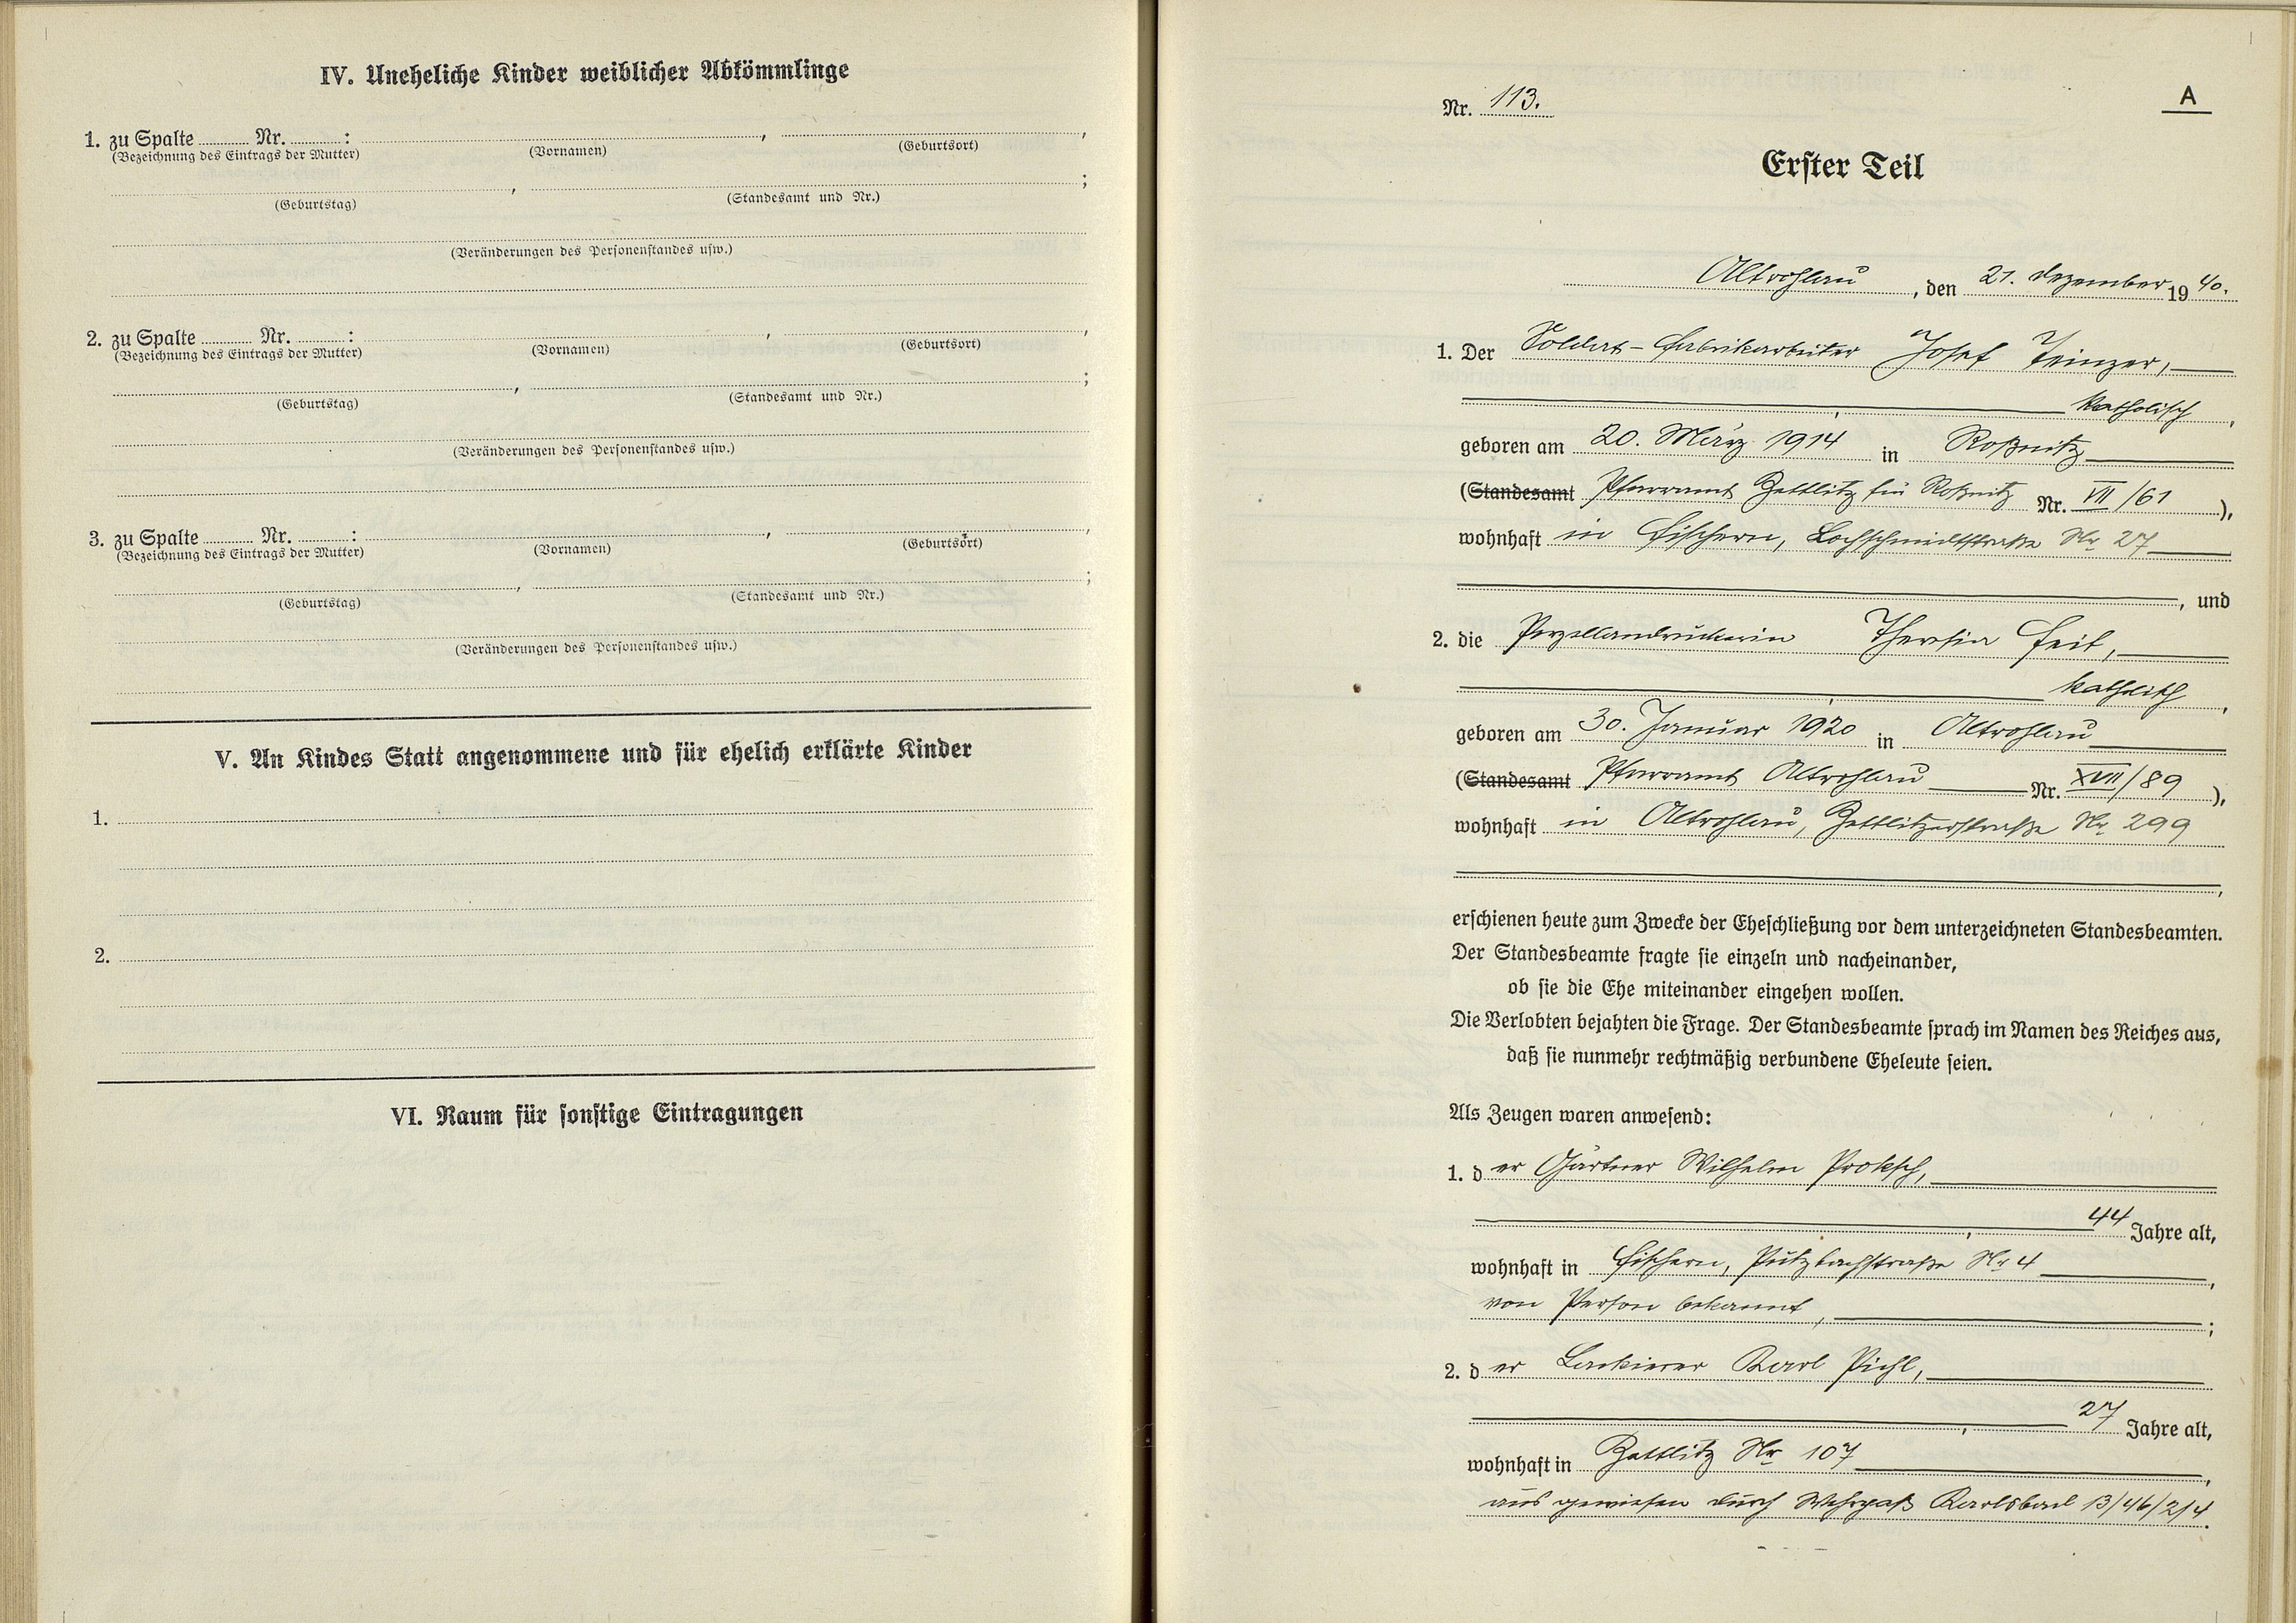 IV. Uneheliche Kinder weiblicher Abkömmlinge
1. zu Spalte ........ Nr. ........ :
(Bezeichnung des Eintrags der Mutter) (Vornamen) , (Geburtsort) ,
(Geburtstag) , (Standesamt und Nr.) ;
(Veränderungen des Personenstandes usw.)
2. zu Spalte ........ Nr. ........ :
(Bezeichnung des Eintrags der Mutter) (Vornamen) , (Geburtsort) ,
(Geburtstag) , (Standesamt und Nr.) ;
(Veränderungen des Personenstandes usw.)
3. zu Spalte ........ Nr. ........ :
(Bezeichnung des Eintrags der Mutter) (Vornamen) , (Geburtsort) ,
(Geburtstag) , (Standesamt und Nr.) ;
(Veränderungen des Personenstandes usw.)
V. An Kindes Statt angenommene und für ehelich erklärte Kinder
1.
2.
VI. Raum für sonstige Eintragungen
Nr. 113.
A
Erster Teil
Altrohlau, den 21. Dezember 1940.
1. Der Soldat-Fabrikarbeiter Josef
katholisch,
geboren am 20. März 1914 in Roßnitz
(Standesamt Pfarramt Zettlitz für Roßnitz Nr. VII/61),
wohnhaft in Fischern, Lochschmidtstraße Nr 27
, und
2. die Porzellandruckerin Theresia Feit,
katholisch,
geboren am 30. Januar 1920 in Altrohlau
(Standesamt Pfarramt Altrohlau Nr. XVII/89),
wohnhaft in Altrohlau, Zettlitzerstraße Nr 299
,
erschienen heute zum Zwecke der Eheschließung vor dem unterzeichneten Standesbeamten.
Der Standesbeamte fragte sie einzeln und nacheinander,
ob sie die Ehe miteinander eingehen wollen.
Die Verlobten bejahten die Frage. Der Standesbeamte sprach im Namen des Reiches aus,
daß sie nunmehr rechtmäßig verbundene Eheleute seien.
Als Zeugen waren anwesend:
1. der Gärtner Wilhelm Proksch,
44 Jahre alt,
wohnhaft in Fischern, Putzbachstraße Nr 4,
von Person bekannt, ;
2. der Lackierer Karl Pichl,
27 Jahre alt,
wohnhaft in Zettlitz Nr 107,
ausgewiesen durch Wehrpaß Karlsbad 13/46/2/4.